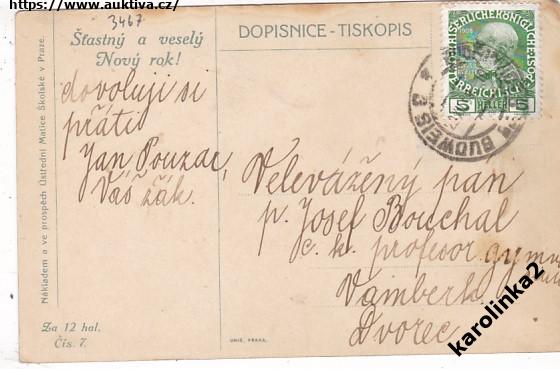 https://www.auktiva.cz/
3467
Šťastný a veselý
Nový rok!
dovoluji si
přáti
Jan Pouzar,
Váš žák.
Nákladem a ve prospěch Ústřední Matice Školské v Praze.
Za 12 hal.
Čís. 7.
DOPISNICE - TISKOPIS
1908
5 HELLER 5
BUDWEIS 3
Velevážený pán
p. Josef Bouchal
c. k. profesor gymn
Vamberk
Dvorec
UNIE, PRAHA.
karolinka2